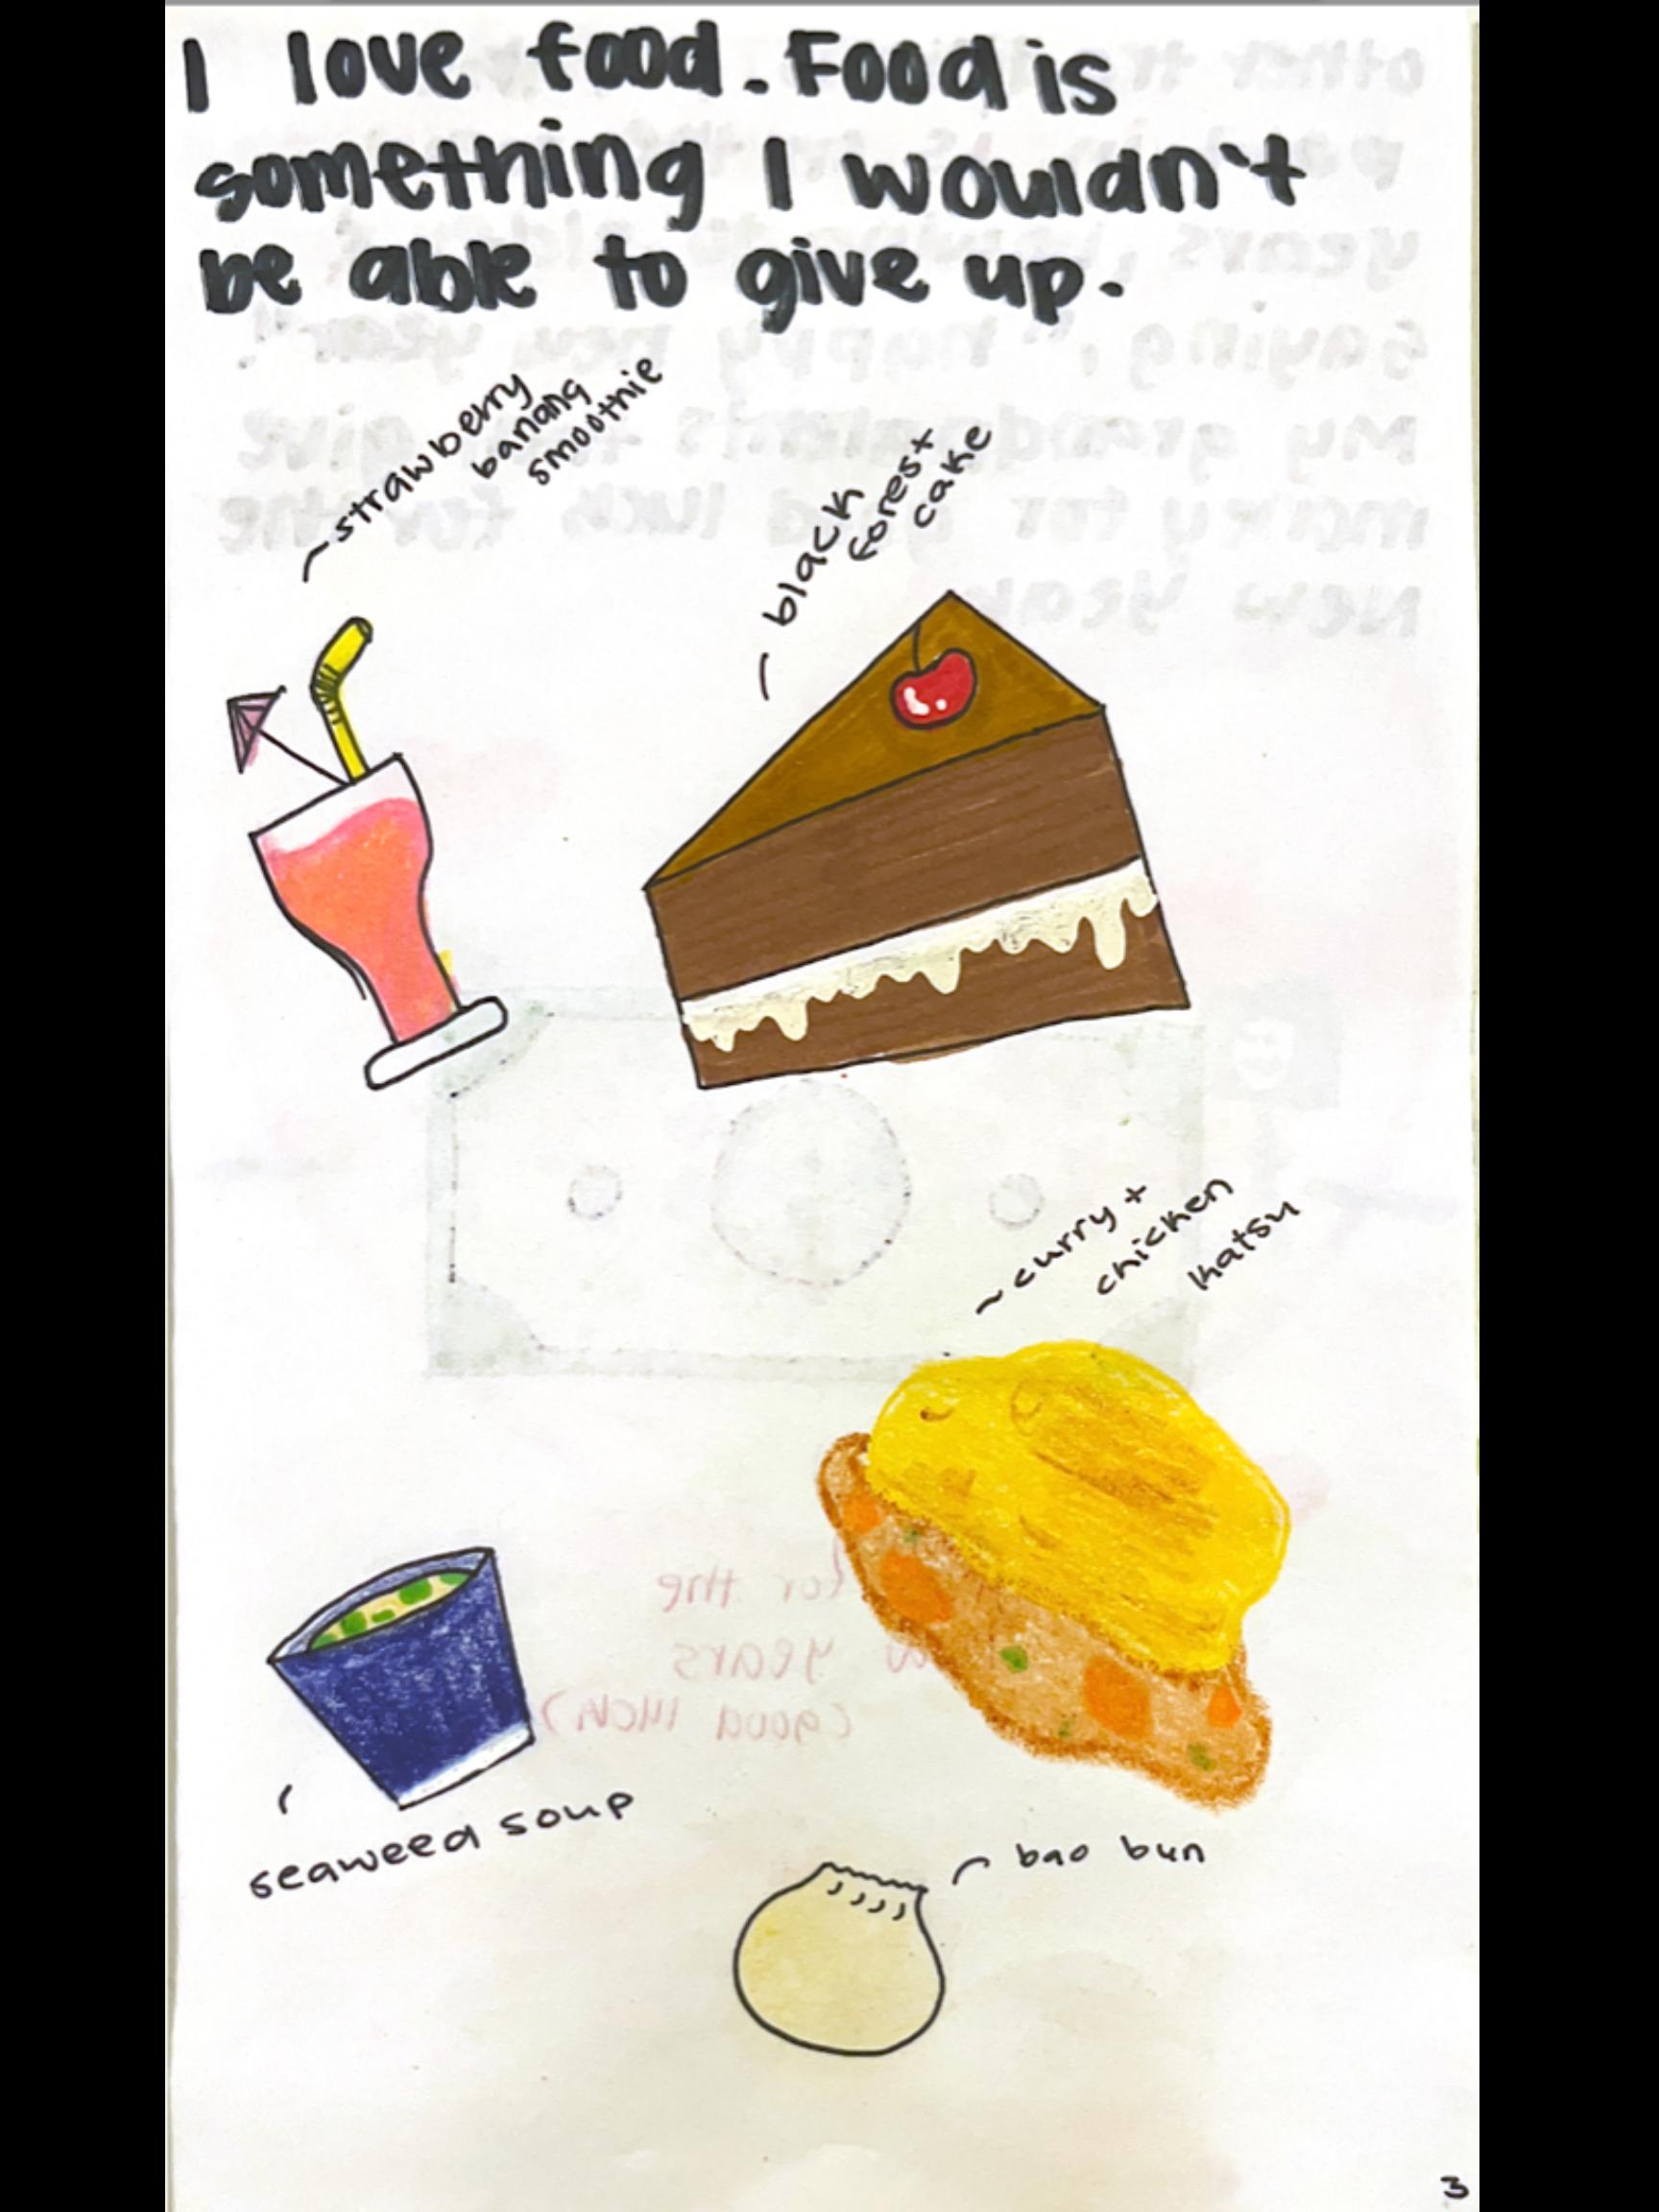 I love food. Food is
something I wouldn't
be able to give up.
strawberry
banana
smoothie
black
forest
cake
curry +
chicken
katsu
seaweed soup
bao bun
3